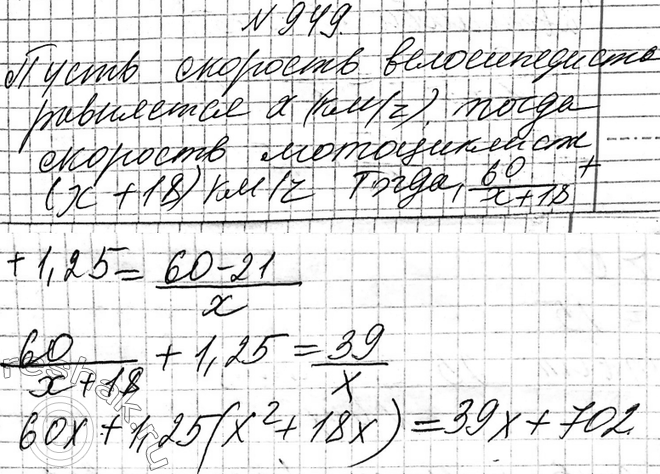 N 949.
Пусть скорость велосипедиста
равняется x (км/ч). тогда
скорость мотоциклист
(x + 18) км/ч Тогда, 60/(x+18) +
+ 1,25 = (60-21)/x
60/(x+18) + 1,25 = 39/x
60x + 1,25(x² + 18x) = 39x + 702.
reshak.ru